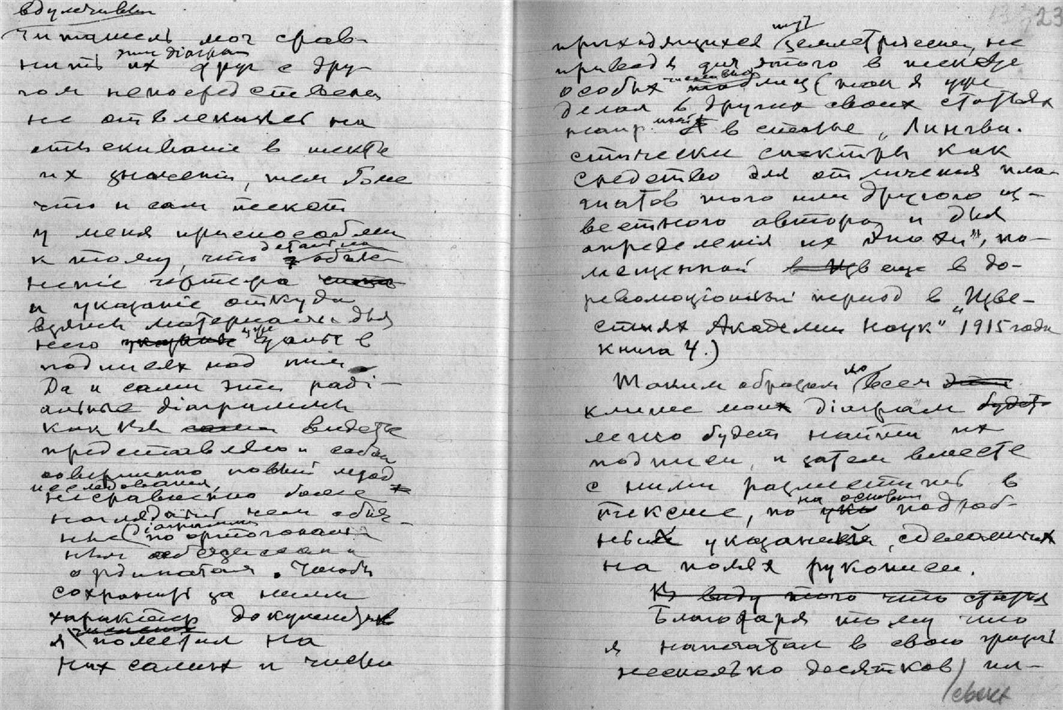 вдумчивый
читатель мог срав-
нить их эти діаграм друг с дру-
гом непосредственно
не отвлекаясь на
отыскиваніе в тексте
их значеній, тем более
что и сам текст
у меня приспособлен
к тому, что детальное
чертежа
и указаніе откуда
взяты матеріалы для
него уже даны в
подписях под ним.
Да и сами эти раді-
альные діаграммы
как Вы видете
представляют собой
совершенно новый метод
изследования,
несравненно более
наглядный чем обыч-
ные діаграммы
по ортогональ
ным абсциссам и
ординатам. Чтобы
сохранить за ними
характер документов
я поместил на
них самих и числа
приходящихся тут землетрясений, не
приводя для этого в тексте
особых числовых таблиц (как я уже
делал в других своих статьях
напр. в статье „Лингви-
стически спектры как
средство для отличения пла-
гиатов того или другого из-
вестного автора и для
определения их эпохи", по-
мещенной еще в до-
революціонный період в „Изве-
стиях Академии Наук" 1915 года
книга 4.)
Таким образом по всем
клише моих діаграм будет
легко будет найти их
подписи, и затем вместе
с ними разместить в
тексте, по на основании подроб-
ных указаний, сделанных
на полях рукописи.
В виду того что статья
Благодаря тому что
я напечатал в свою
несколько десятков